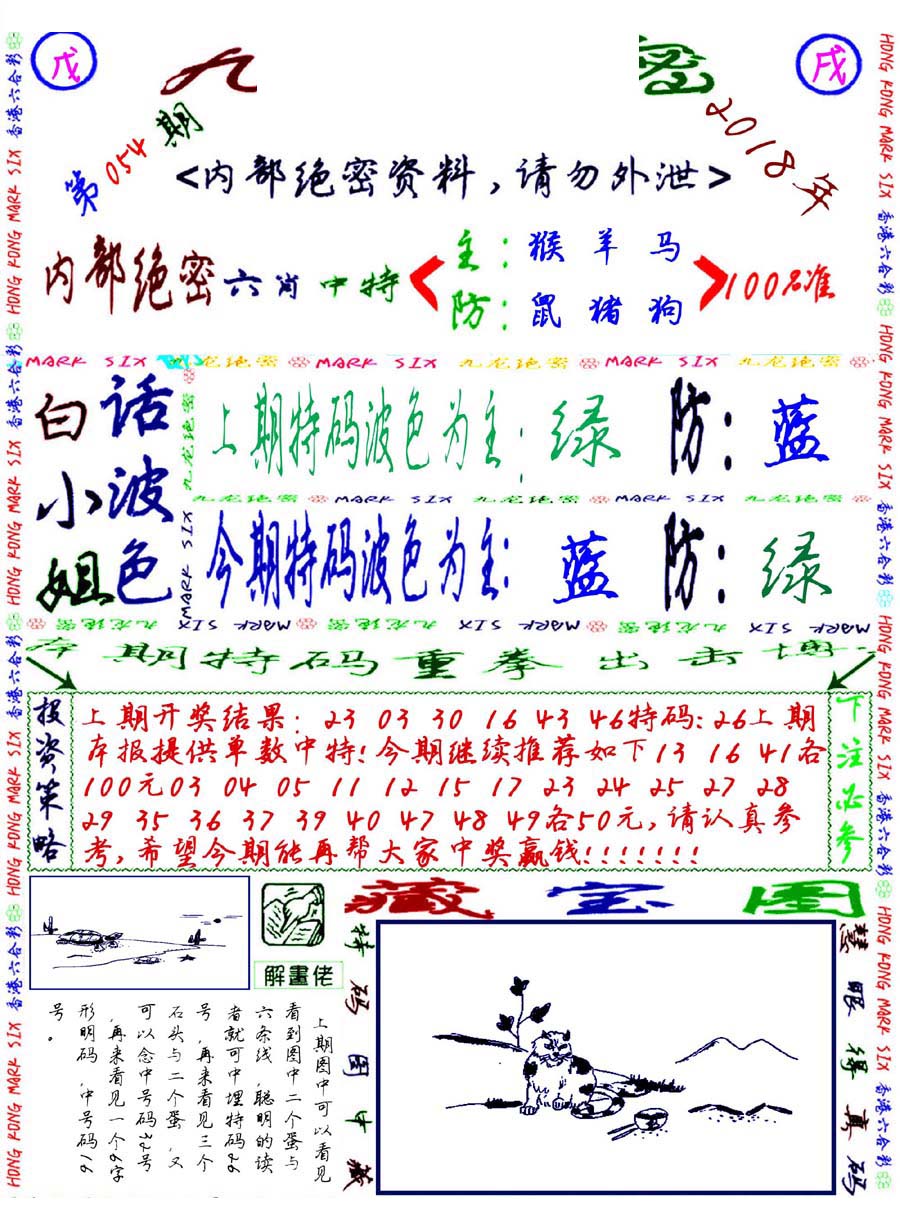 戊
九
密
戌
第054期
2018年
<内部绝密资料,请勿外泄>
内部绝密六肖中特
主:猴羊马
防:鼠猪狗
100%准
MARK SIX 九龙绝密 MARK SIX 九龙绝密 MARK SIX 九龙绝密
白话小波姐色
上期特码波色为主:绿 防:蓝
九龙绝密 MARK SIX 九龙绝密 MARK SIX 九龙绝密
今期特码波色为主:蓝 防:绿
九龙绝密 MARK SIX 九龙绝密 MARK SIX 九龙绝密 MARK SIX
本期特码重拳出击博
投资策略
上期开奖结果:23 03 30 16 43 46特码:26上期
本报提供单数中特!今期继续推荐如下13 16 41各
100元03 04 05 11 12 15 17 23 24 25 27 28
29 35 36 37 39 40 47 48 49各50元,请认真参
考,希望今期能再帮大家中奖赢钱!!!!!!!
下注必参
解畫佬
藏宝图
特码图中藏
慧眼得真码
上期图中可以看见
看到图中二个蛋与
六条线,聪明的读
者就可中埋特码26
号,再来看见三个
石头与二个蛋,又
可以念中号码32号
,再来看见一个9字
形明码,中号码19
号。
HONG KONG MARK SIX 香港六合彩 HONG KONG MARK SIX 香港六合彩 HONG KONG MARK SIX 香港六合彩 HONG KONG MARK SIX 香港六合彩
HONG KONG MARK SIX 香港六合彩 HONG KONG MARK SIX 香港六合彩 HONG KONG MARK SIX 香港六合彩 HONG KONG MARK SIX 香港六合彩